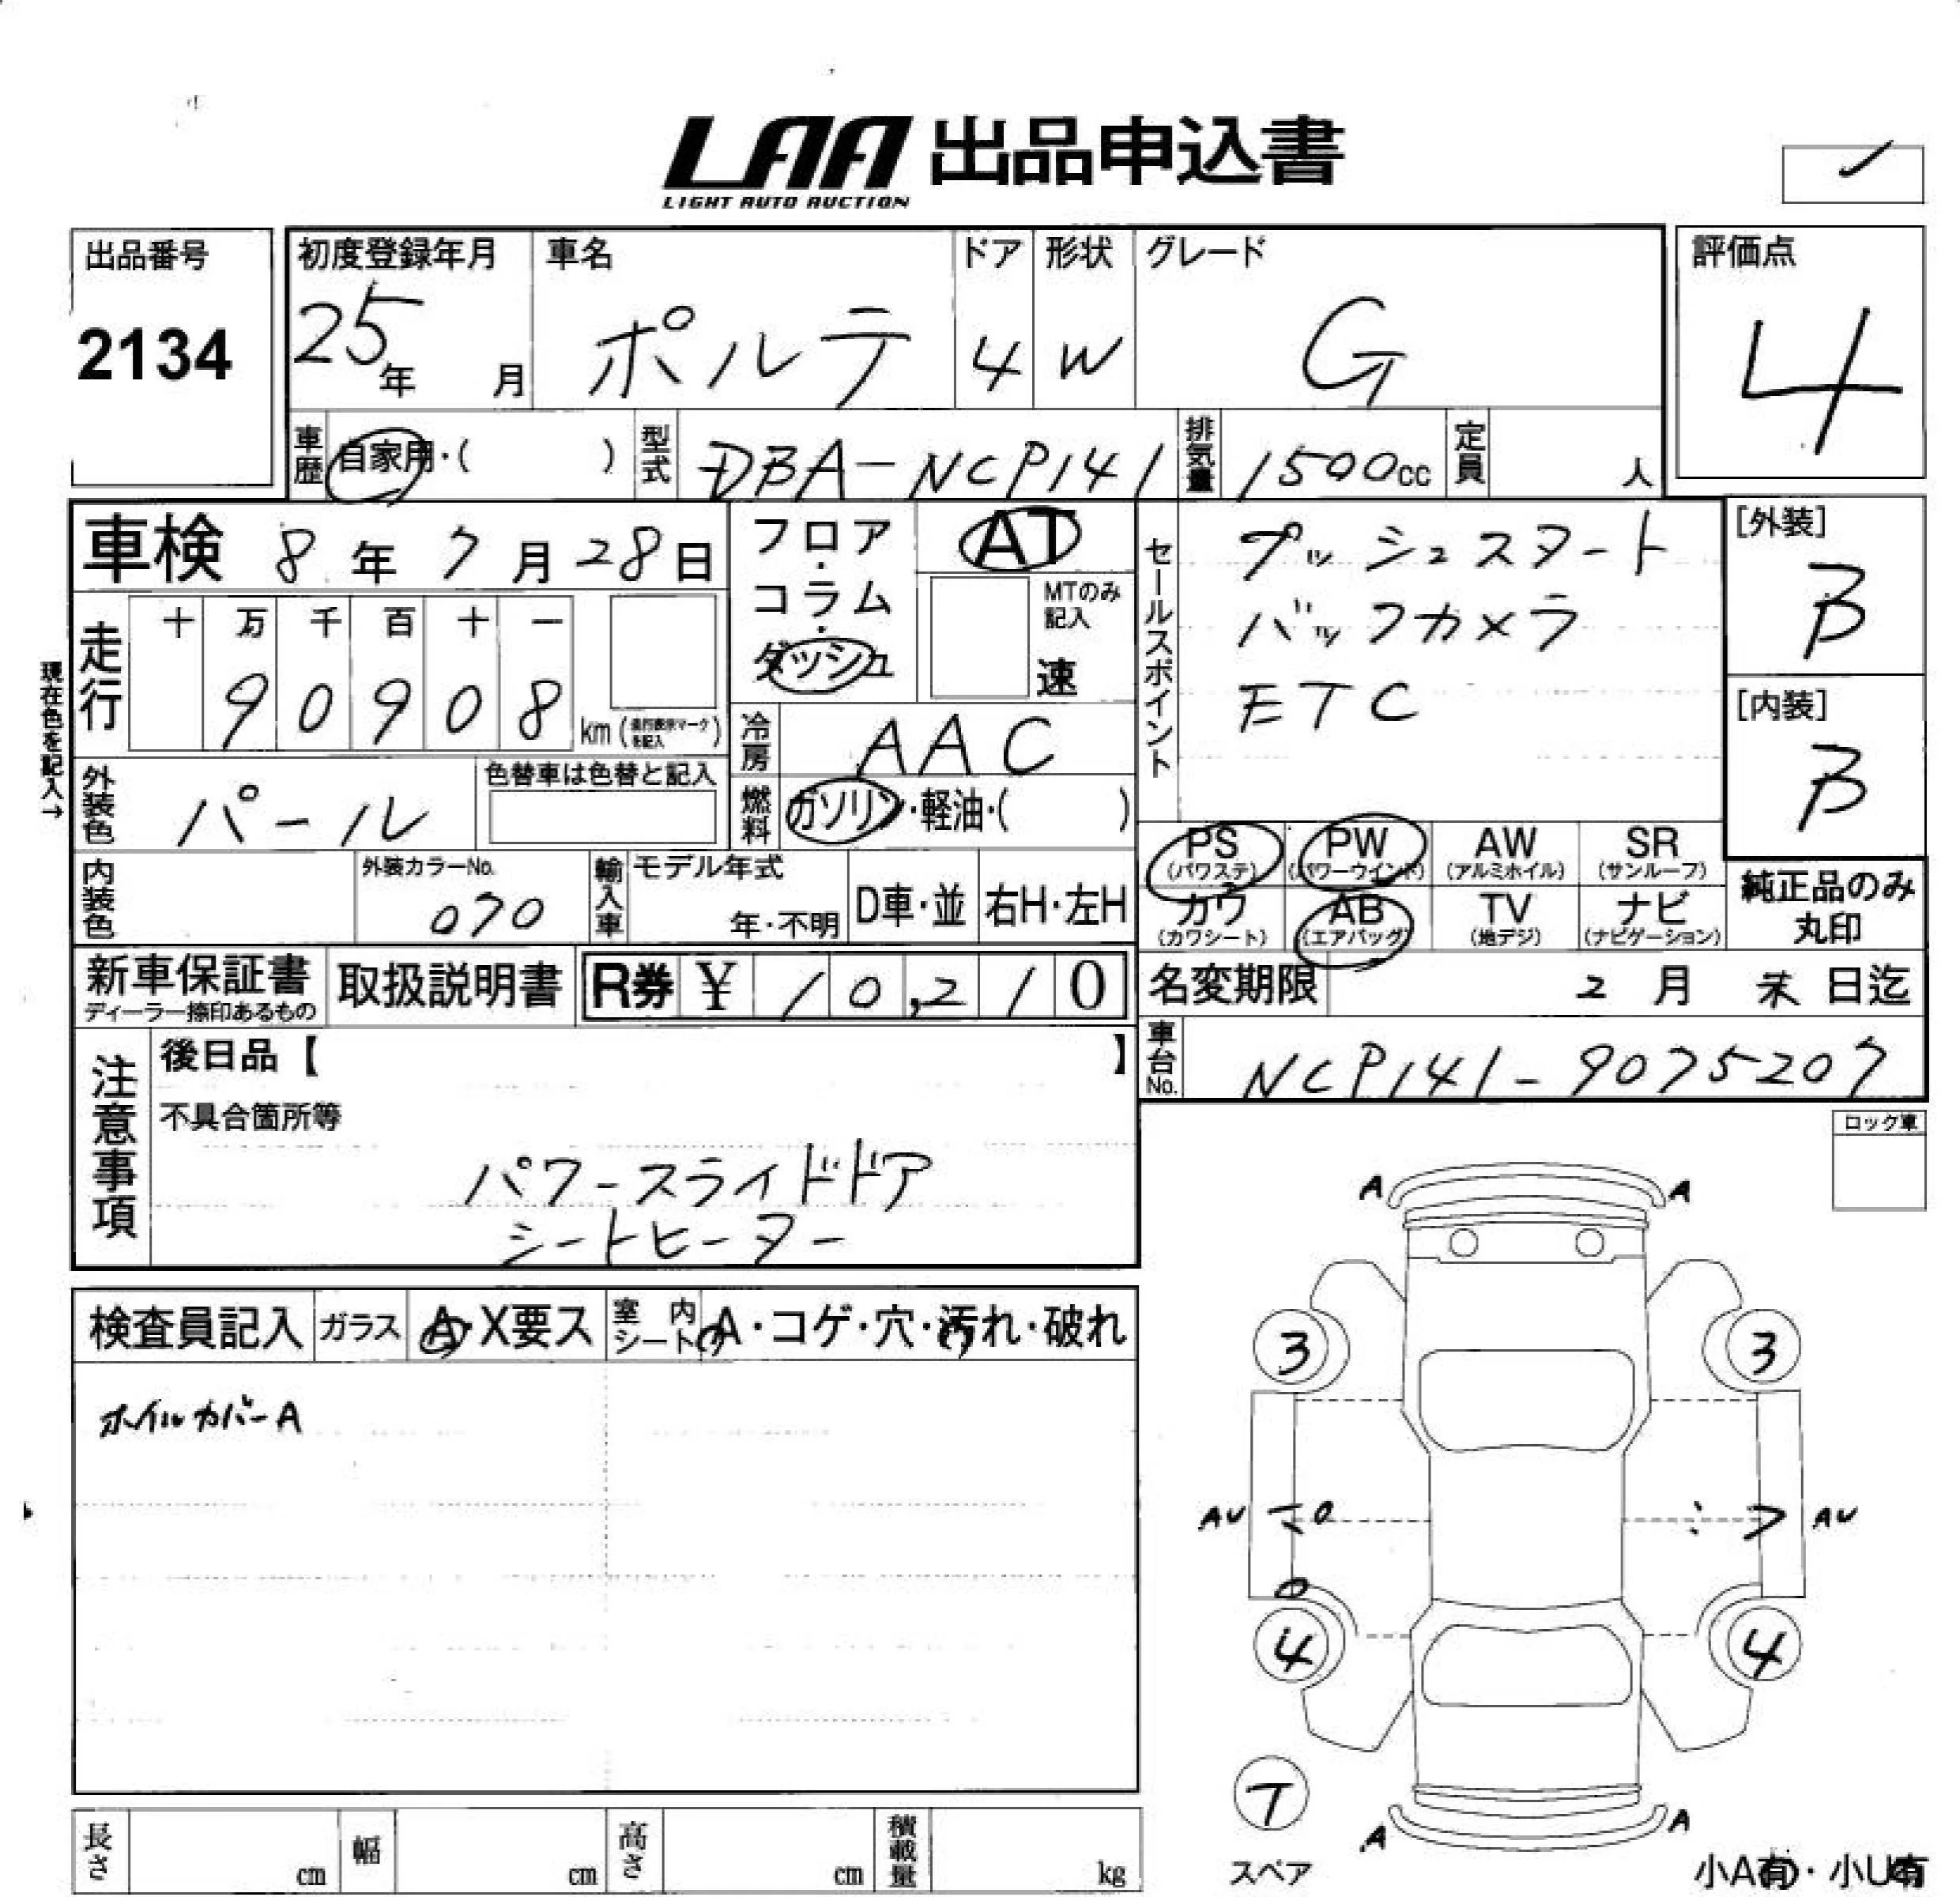 LAA 出品申込書
LIGHT AUTO AUCTION
出品番号
2134
初度登録年月
25年 月
車名
ポルテ
ドア
4
形状
W
グレード
G
評価点
4
車歴 自家用・( )
型式 DBA-NCP141
排気量 1500cc
定員 人
車検 8年 7月 28日
フロア・コラム・ダッシュ
AT
MTのみ記入
速
セールスポイント
プッシュスタート
バックカメラ
ETC
[外装]
B
[内装]
B
現在色を記入→
走行
十 万 千 百 十 一
9 0 9 0 8 km (走行表示マークを記入)
冷房 AAC
外装色 パール
色替車は色替と記入
燃料 ガソリン・軽油・( )
内装色
外装カラーNo.
070
輸入車
モデル年式
年・不明
D車・並
右H・左H
PS (パワステ)
PW (パワーウインド)
AW (アルミホイル)
SR (サンルーフ)
カワ (カワシート)
AB (エアバッグ)
TV (地デジ)
ナビ (ナビゲーション)
純正品のみ
丸印
新車保証書
ディーラー捺印あるもの
取扱説明書
R券 ¥ 10,210
名変期限 2月 末日迄
車台No. NCP141-9075207
注意事項
後日品【 】
不具合箇所等
パワースライドドア
シートヒーター
ロック車
検査員記入
ガラス A・X要ス
室内シート A・コゲ・穴・汚れ・破れ
ホイルカバーA
A A
3 3
AU AU
4 4
T
スペア
A A
小A有・小U有
長さ cm
幅 cm
高さ cm
積載量 kg